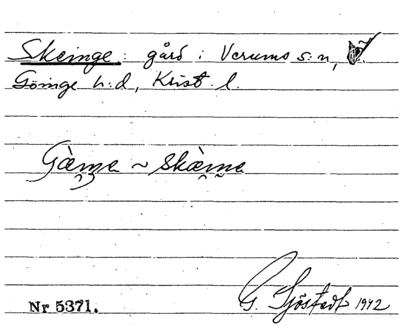 Skeinge: gård i Verums s:n,
Göinge h:d, Krist. l.
Gö̀inge ~ Skèinge
Nr 5371.
G. Sjöstedt 1942